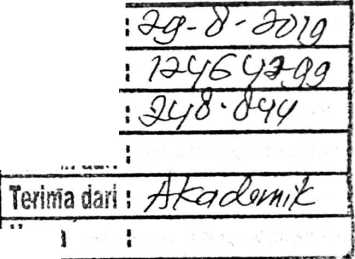 : 29-8-2019
: 12464299
: 248.844
Terima dari : Akademik
: